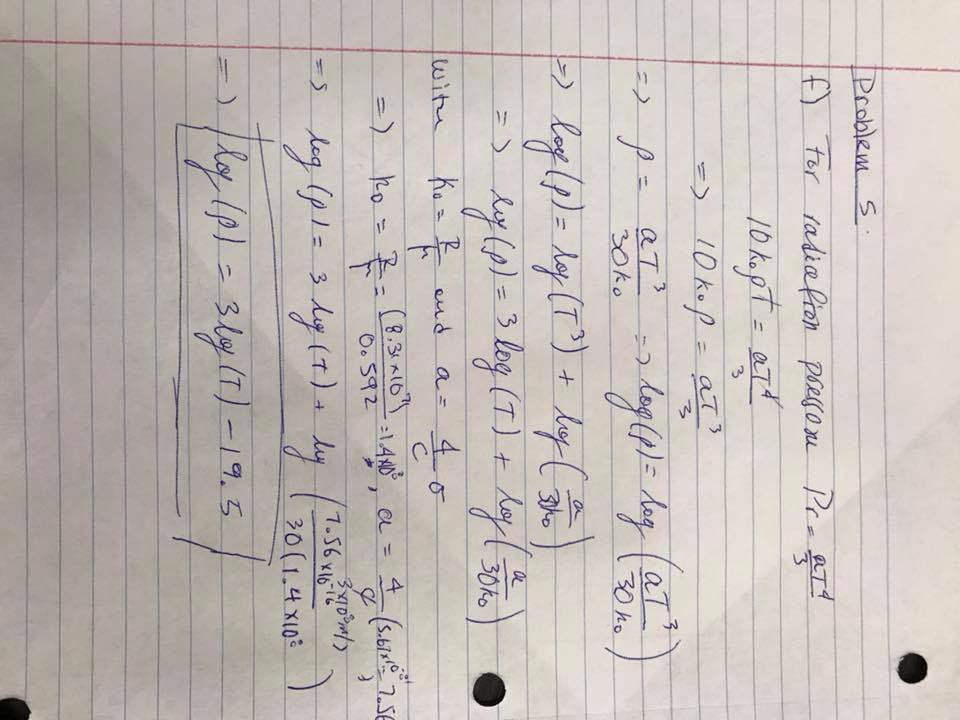 Problem 5.
f) For radiation pressure Pr = aT⁴/3
10k₀ρT = aT⁴/3
=> 10k₀ρ = aT³/3
=> ρ = aT³/30k₀ => log(ρ) = log(aT³/30k₀)
=> log(ρ) = log(T³) + log(a/30k₀)
=> log(ρ) = 3log(T) + log(a/30k₀)
with k₀ = R/μ and a = 4/c σ
=> k₀ = R/μ = (8.31×10⁷)/0.592 = 1.4×10⁸, a = 4/c (5.67×10 = 7.56
3×10⁸m/s
=> log(ρ) = 3log(T) + log(7.56×10⁻¹⁶/30(1.4×10⁸))
=> log(ρ) = 3log(T) - 19.5